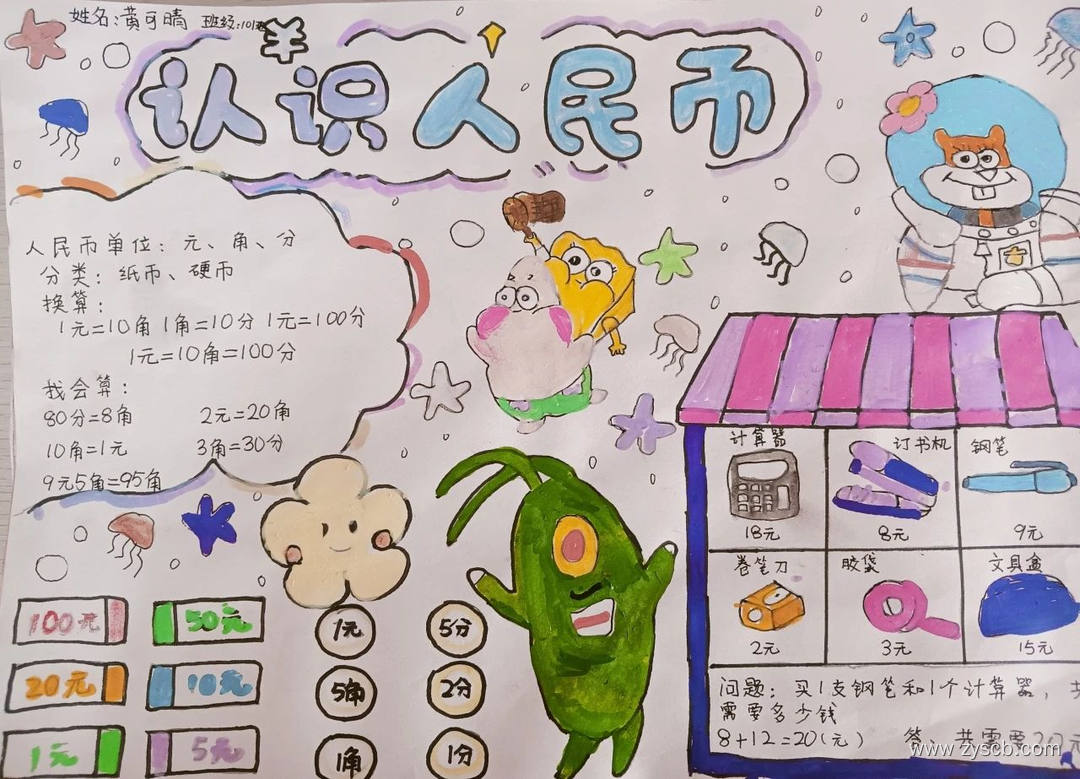 姓名:黄可晴 班级:101班
认识人民币
人民币单位：元、角、分
分类：纸币、硬币
换算：
1元=10角 1角=10分 1元=100分
1元=10角=100分
我会算：
80分=8角 2元=20角
10角=1元 3角=30分
9元5角=95角
100元 50元
20元 10元
1元 5元
1元 5分
5角 2分
1角 1分
计算器 订书机 钢笔
18元 8元 9元
卷笔刀 胶袋 文具盒
2元 3元 15元
问题：买1支钢笔和1个计算器，共
需要多少钱
8+12=20(元) 答：共需要20元
www.zyscb.com